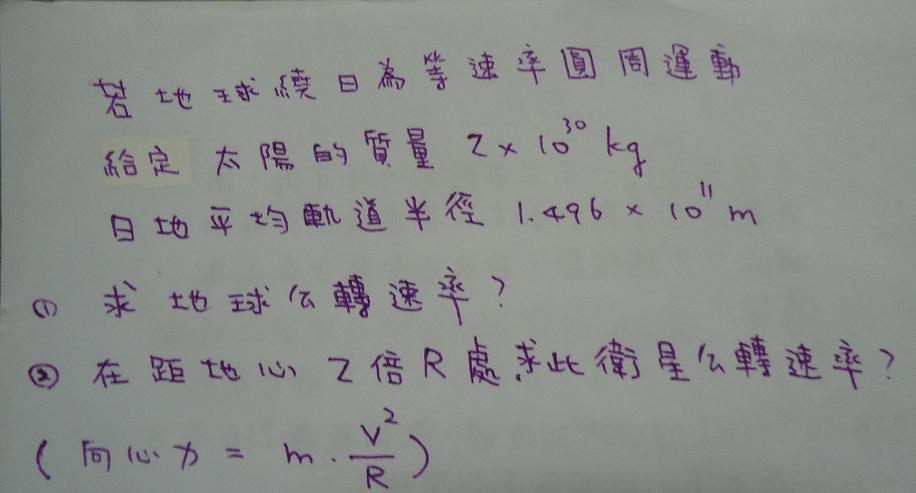 若地球繞日為等速率圓周運動
給定太陽的質量 2×10³⁰ kg
日地平均軌道半徑 1.496 × 10¹¹ m
(1) 求地球公轉速率?
(2) 在距地心 2倍R處求此衛星公轉速率?
(向心力 = m · V²/R)